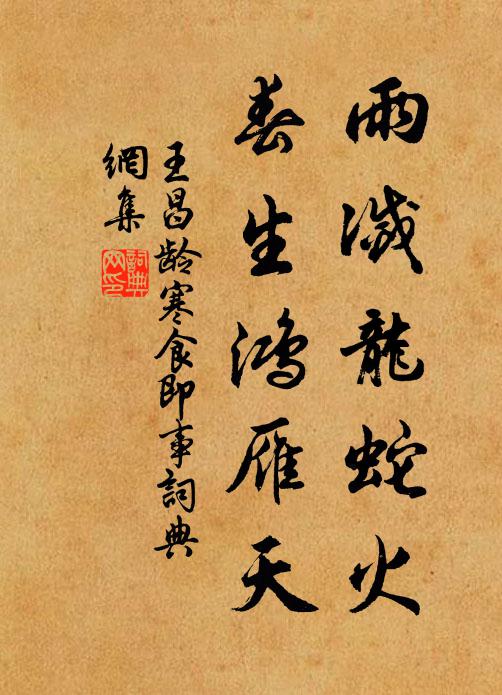 雨滅龍蛇火
春生鴻雁天
王昌龄寒食即事詞典
網集
詞典
网印